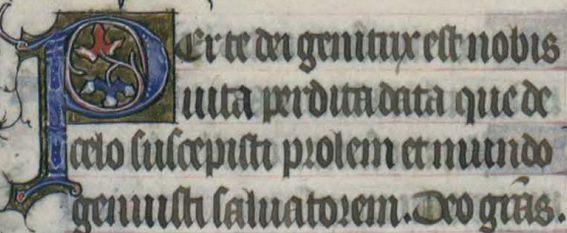 Per te dei genitrix est nobis
uita perdita data que de
celo suscepisti prolem et mundo
genuisti saluatorem. Deo gr̃as.